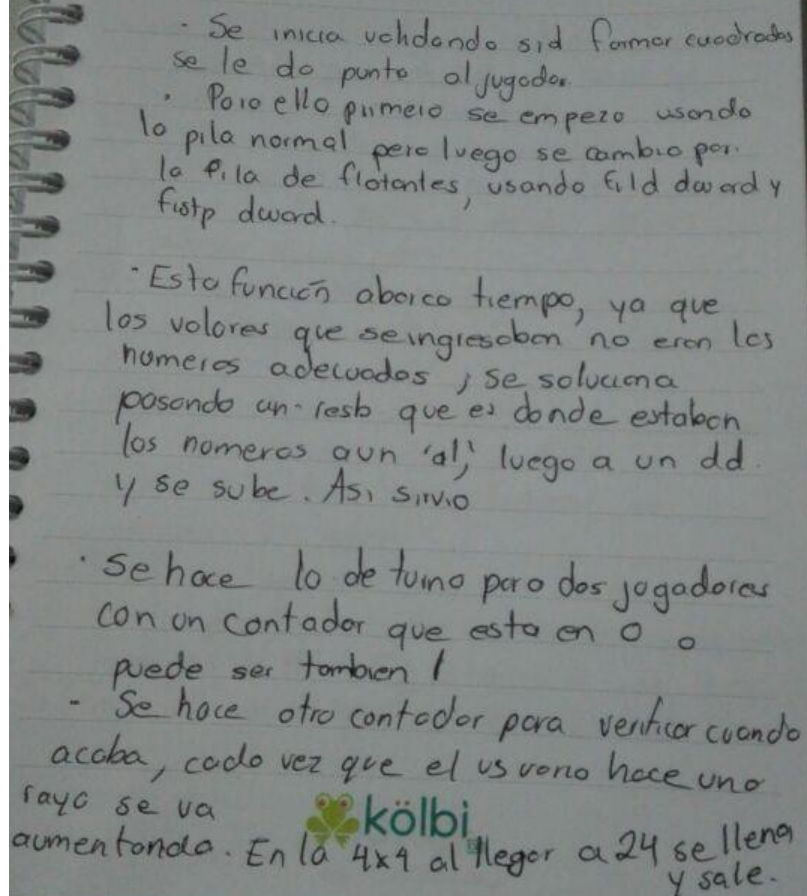 · Se inicia validando si al formar cuadrados
se le da punto al jugador.
· Para ello primero se empezo usando
la pila normal pero luego se cambio por
la pila de flotantes, usando fild dword y
fistp dword.
· Esta función abarco tiempo, ya que
los valores que se ingresaban no eran los
numeros adecuados, se soluciona
pasando un resb que es donde estaban
los numeros a un 'al', luego a un dd
y se sube. Asi sirvio
· Se hace lo de turno para dos jugadores
con un contador que esta en 0 o
puede ser tambien 1
- Se hace otro contador para verificar cuando
acaba, cada vez que el usuario hace una
raya se va
kölbi
aumentando. En la 4x4 al llegar a 24 se llena
y sale.